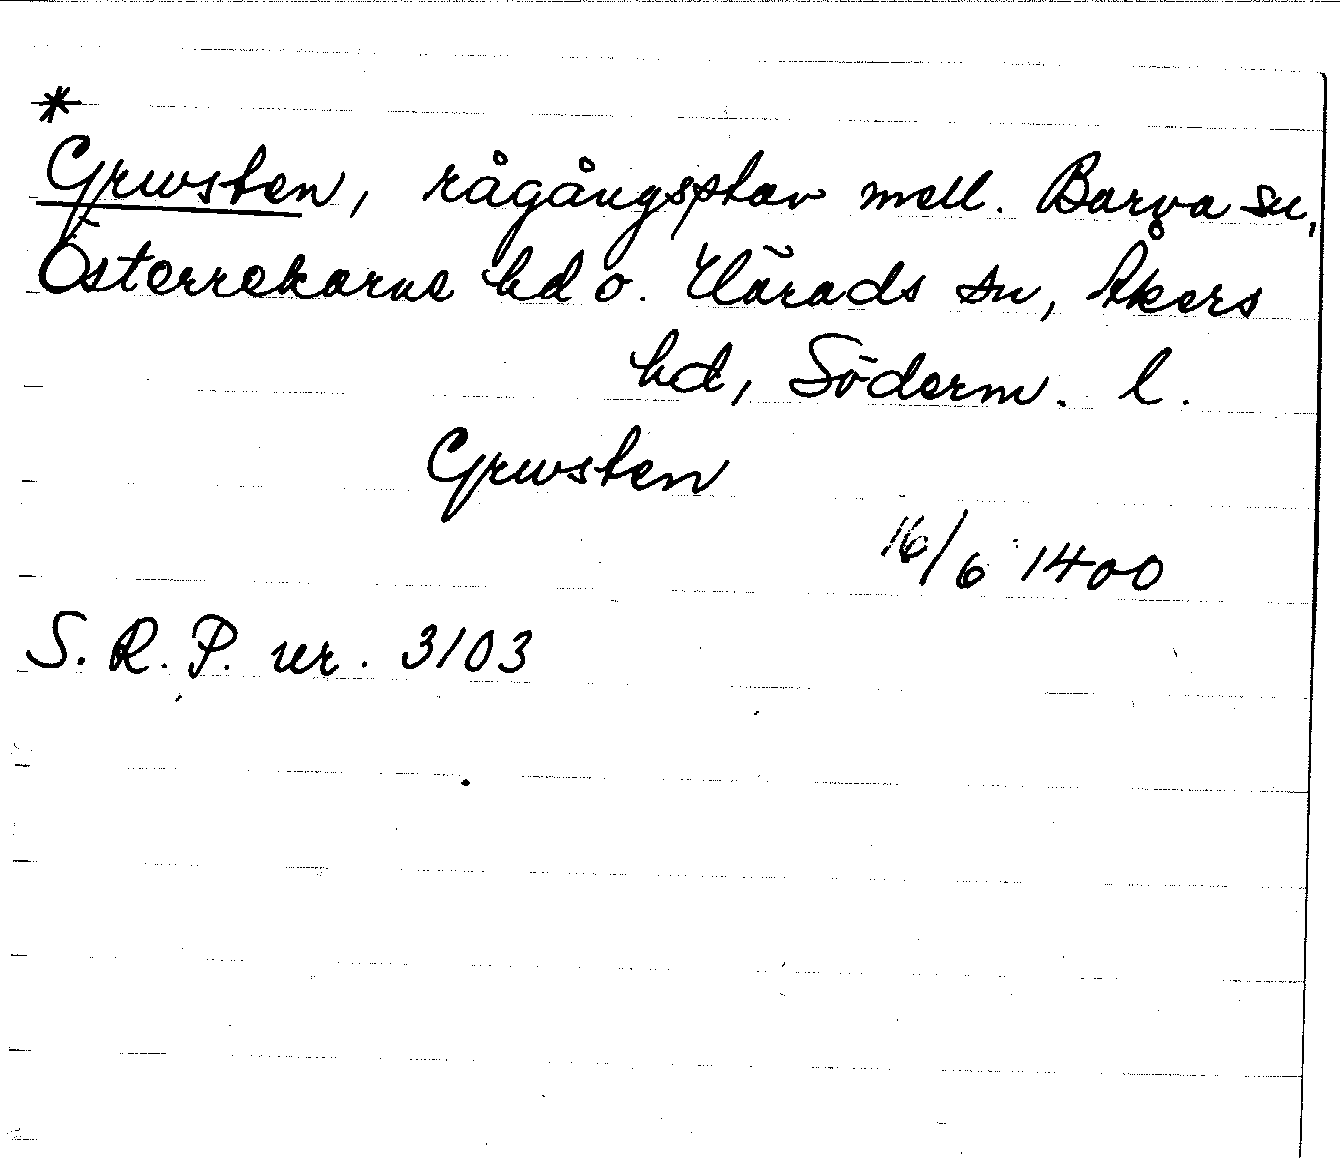 *
Grwsten, rågångsplav mell. Barva sn,
Österrekarne hd o. Härads sn, Åkers
hd, Söderm. l.
Grwsten
16/6 1400
S. R. P. nr. 3103